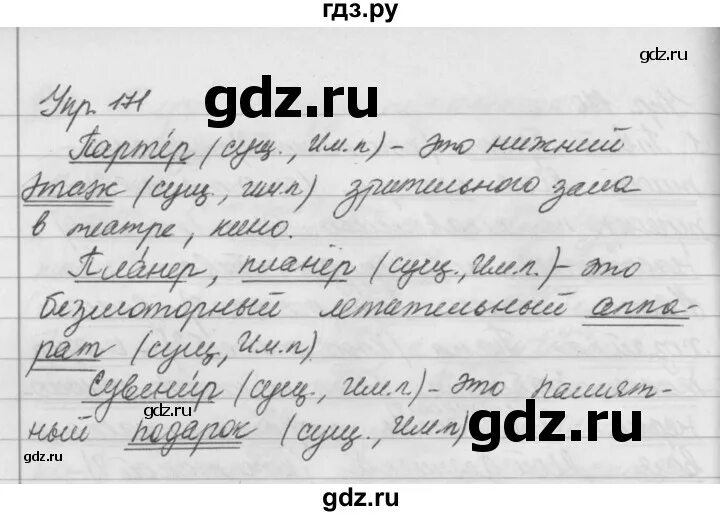 гдз.ру
gdz.ru
gdz.ru
Упр. 171
Партéр (сущ., Им.п) – это нижний
этаж (сущ., им.п) зрительного зала
в театре, кино.
Плáнер, планёр (сущ., Им.п.) – это
безмоторный летательный аппа-
рат (сущ., Им.п)
Сувени́р (сущ., Им.п.) – это памят-
gdz.ru
ный подарок (сущ., Им.п)
gdz.ru
gdz.ru
gdz.ru